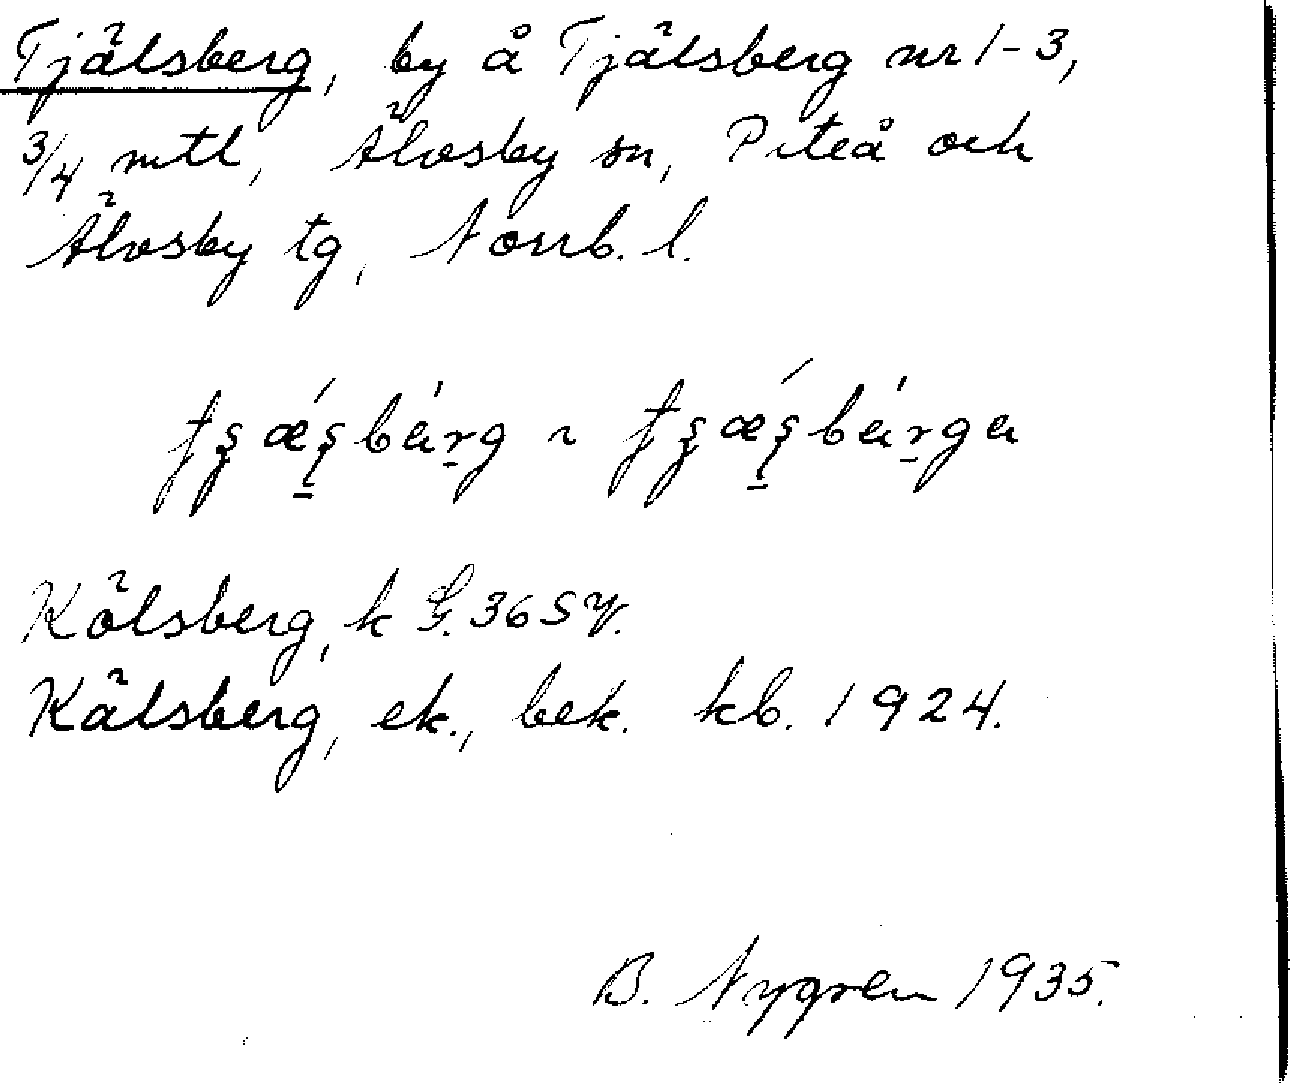 Tjälsberg, by å Tjälsberg nr 1-3,
3/4 mtl, Älvsby sn, Piteå och
Älvsby tg, Norrb. l.
Kälsberg, k G. 36 S V.
Kälsberg, ek., bek. kb. 1924.
B. Nygren 1935.